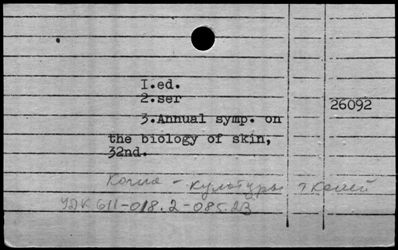 I.ed.
2.ser
26092
3.Annual symp. on
the biology of skin,
32nd.
Кожа - культуры тканей
УДК 611-018.2-085.23